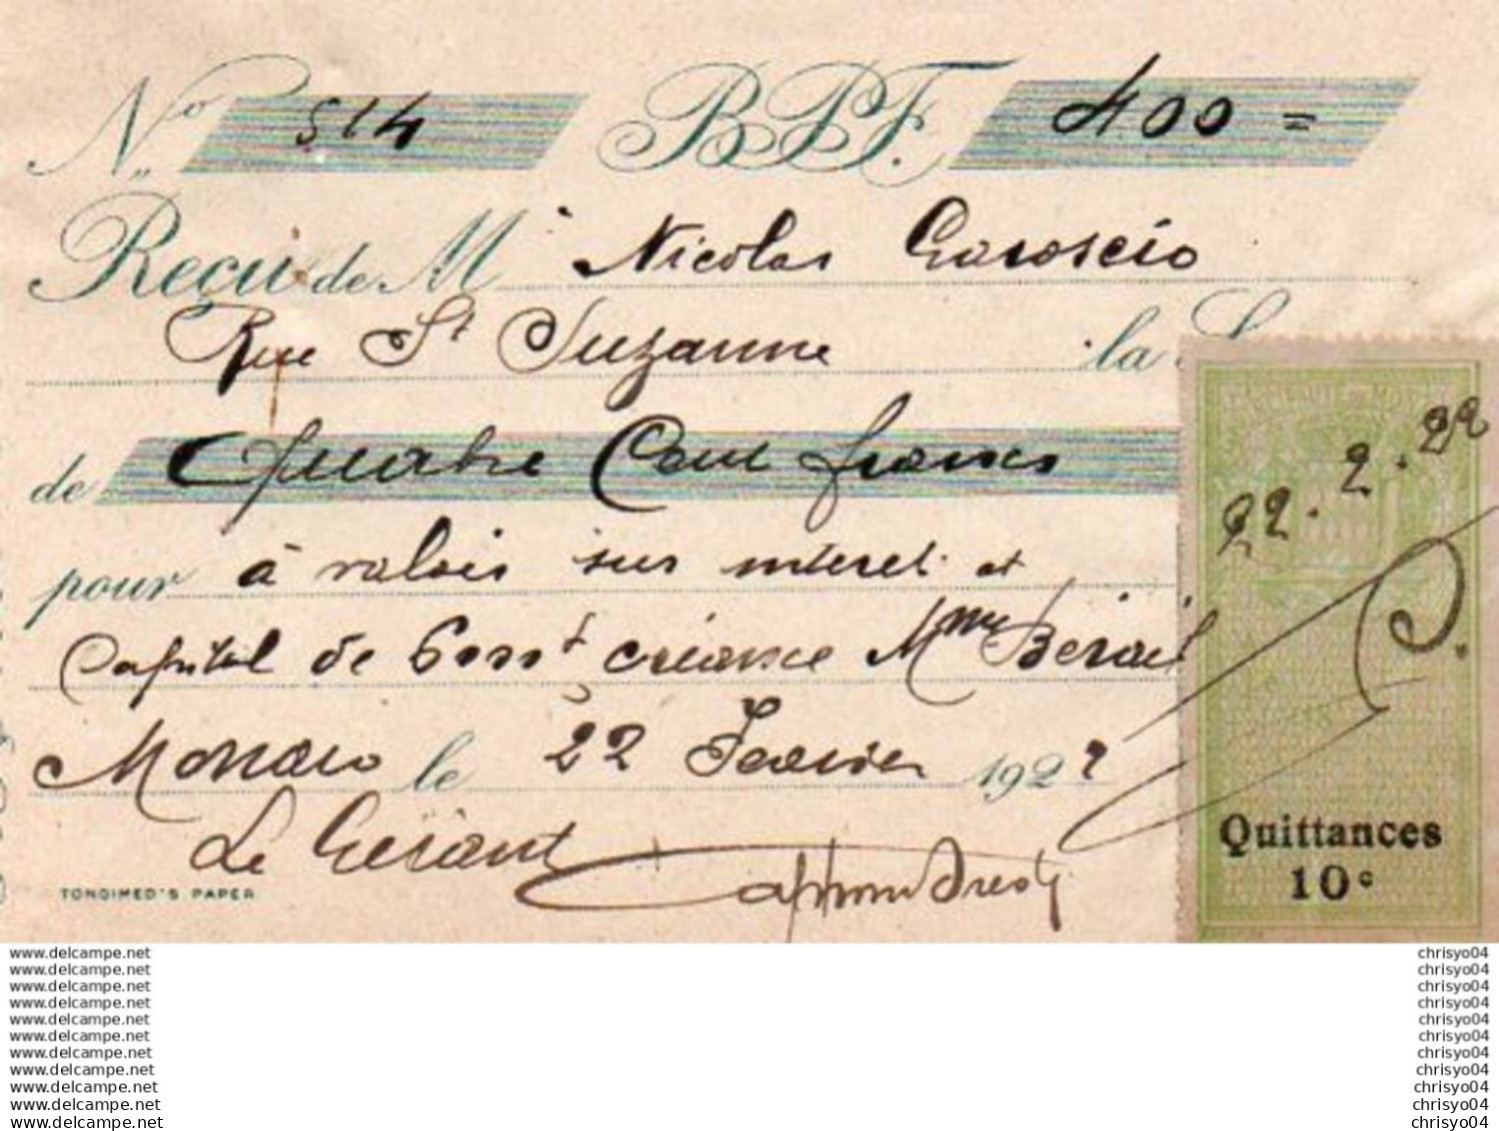 No. 514 B.P.F. 400 =
Reçu de M Nicolas
Rue St Suzanne la S
de Quatre Cent francs
pour à valoir sur interet et
Capital de 6000f créance Mme
Monaco le 22 Fevrier 1922
Le Gérant
TONDIMED'S PAPER
22.2.22
Quittances
10c
www.delcampe.net chrisyo04
www.delcampe.net chrisyo04
www.delcampe.net chrisyo04
www.delcampe.net chrisyo04
www.delcampe.net chrisyo04
www.delcampe.net chrisyo04
www.delcampe.net chrisyo04
www.delcampe.net chrisyo04
www.delcampe.net chrisyo04
www.delcampe.net chrisyo04
www.delcampe.net chrisyo04